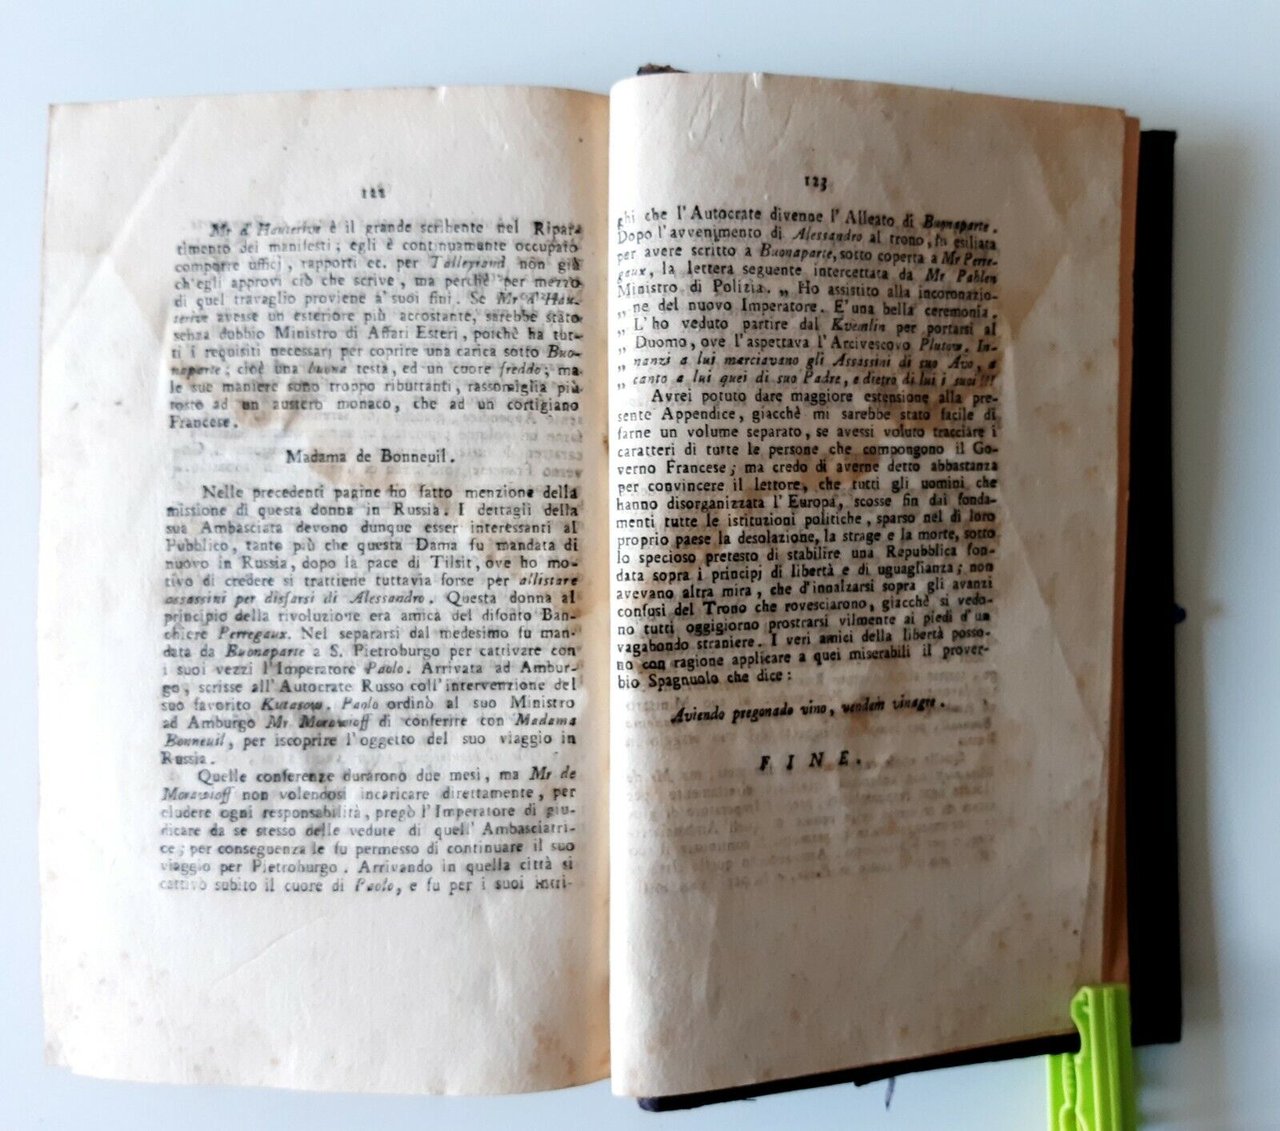 122
Mr d'Hauterive è il grande scribente nel Ripar-
timento dei manifesti; egli è continuamente occupato
comporre uffici, rapporti ec. per Talleyrand non già
ch'egli approvi ciò che scrive, ma perchè per mezzo
di quel travaglio proviene a' suoi fini. Se Mr d'Hau-
terive avesse un esteriore più accostante, sarebbe stato
senza dubbio Ministro di Affari Esteri, poichè ha tut-
ti i requisiti necessarj per coprire una carica sotto Buo-
naparte; cioè una buona testa, ed un cuore freddo; ma
le sue maniere sono troppo ributtanti, rassomiglia più
tosto ad un austero monaco, che ad un cortigiano
Francese.
Madama de Bonneuil.
Nelle precedenti pagine ho fatto menzione della
missione di questa donna in Russia. I dettagli della
sua Ambasciata devono dunque esser interessanti al
Pubblico, tanto più che questa Dama fu mandata di
nuovo in Russia, dopo la pace di Tilsit, ove ho mo-
tivo di credere si trattiene tuttavia forse per allistare
assassini per disfarsi di Alessandro. Questa donna al
principio della rivoluzione era amica del difonto Ban-
chiere Perregaux. Nel separarsi dal medesimo fu man-
data da Buonaparte a S. Pietroburgo per cattivare con
i suoi vezzi l'Imperatore Paolo. Arrivata ad Ambur-
go, scrisse all'Autocrate Russo coll'intervenzione del
suo favorito Kutasow. Paolo ordinò al suo Ministro
ad Amburgo Mr Morawioff di conferire con Madama
Bonneuil, per iscoprire l'oggetto del suo viaggio in
Russia.
Quelle conferenze durarono due mesi, ma Mr de
Morawioff non volendosi incaricare direttamente, per
eludere ogni responsabilità, pregò l'Imperatore di giu-
dicare da se stesso delle vedute di quell'Ambasciatri-
ce; per conseguenza le fu permesso di continuare il suo
viaggio per Pietroburgo. Arrivando in quella città si
cattivò subito il cuore di Paolo, e fu per i suoi intri-
123
ghi che l'Autocrate divenne l'Alleato di Buonaparte.
Dopo l'avvenimento di Alessandro al trono, fu esiliata
per avere scritto a Buonaparte, sotto coperta a Mr Perre-
gaux, la lettera seguente intercettata da Mr Pahlen
Ministro di Polizia. „ Ho assistito alla incoronazio-
„ ne del nuovo Imperatore. E' una bella ceremonia.
„ L'ho veduto partire dal Kremlin per portarsi al
„ Duomo, ove l'aspettava l'Arcivescovo Platow. In-
„ nanzi a lui marciavano gli Assassini di suo Avo, a
„ canto a lui quei di suo Padre, e dietro di lui i suoi!!!
Avrei potuto dare maggiore estensione alla pre-
sente Appendice, giacchè mi sarebbe stato facile di
farne un volume separato, se avessi voluto tracciare i
caratteri di tutte le persone che compongono il Go-
verno Francese; ma credo di averne detto abbastanza
per convincere il lettore, che tutti gli uomini che
hanno disorganizzata l'Europa, scosse fin dai fonda-
menti tutte le istituzioni politiche, sparso nel di loro
proprio paese la desolazione, la strage e la morte, sotto
lo specioso pretesto di stabilire una Repubblica fon-
data sopra i principj di libertà e di uguaglianza; non
avevano altra mira, che d'innalzarsi sopra gli avanzi
confusi del Trono che rovesciarono, giacchè si vedo-
no tutti oggigiorno prostrarsi vilmente ai piedi d'un
vagabondo straniere. I veri amici della libertà posso-
no con ragione applicare a quei miserabili il prover-
bio Spagnuolo che dice:
Aviendo pregonado vino, vendem vinagre.
FINE.